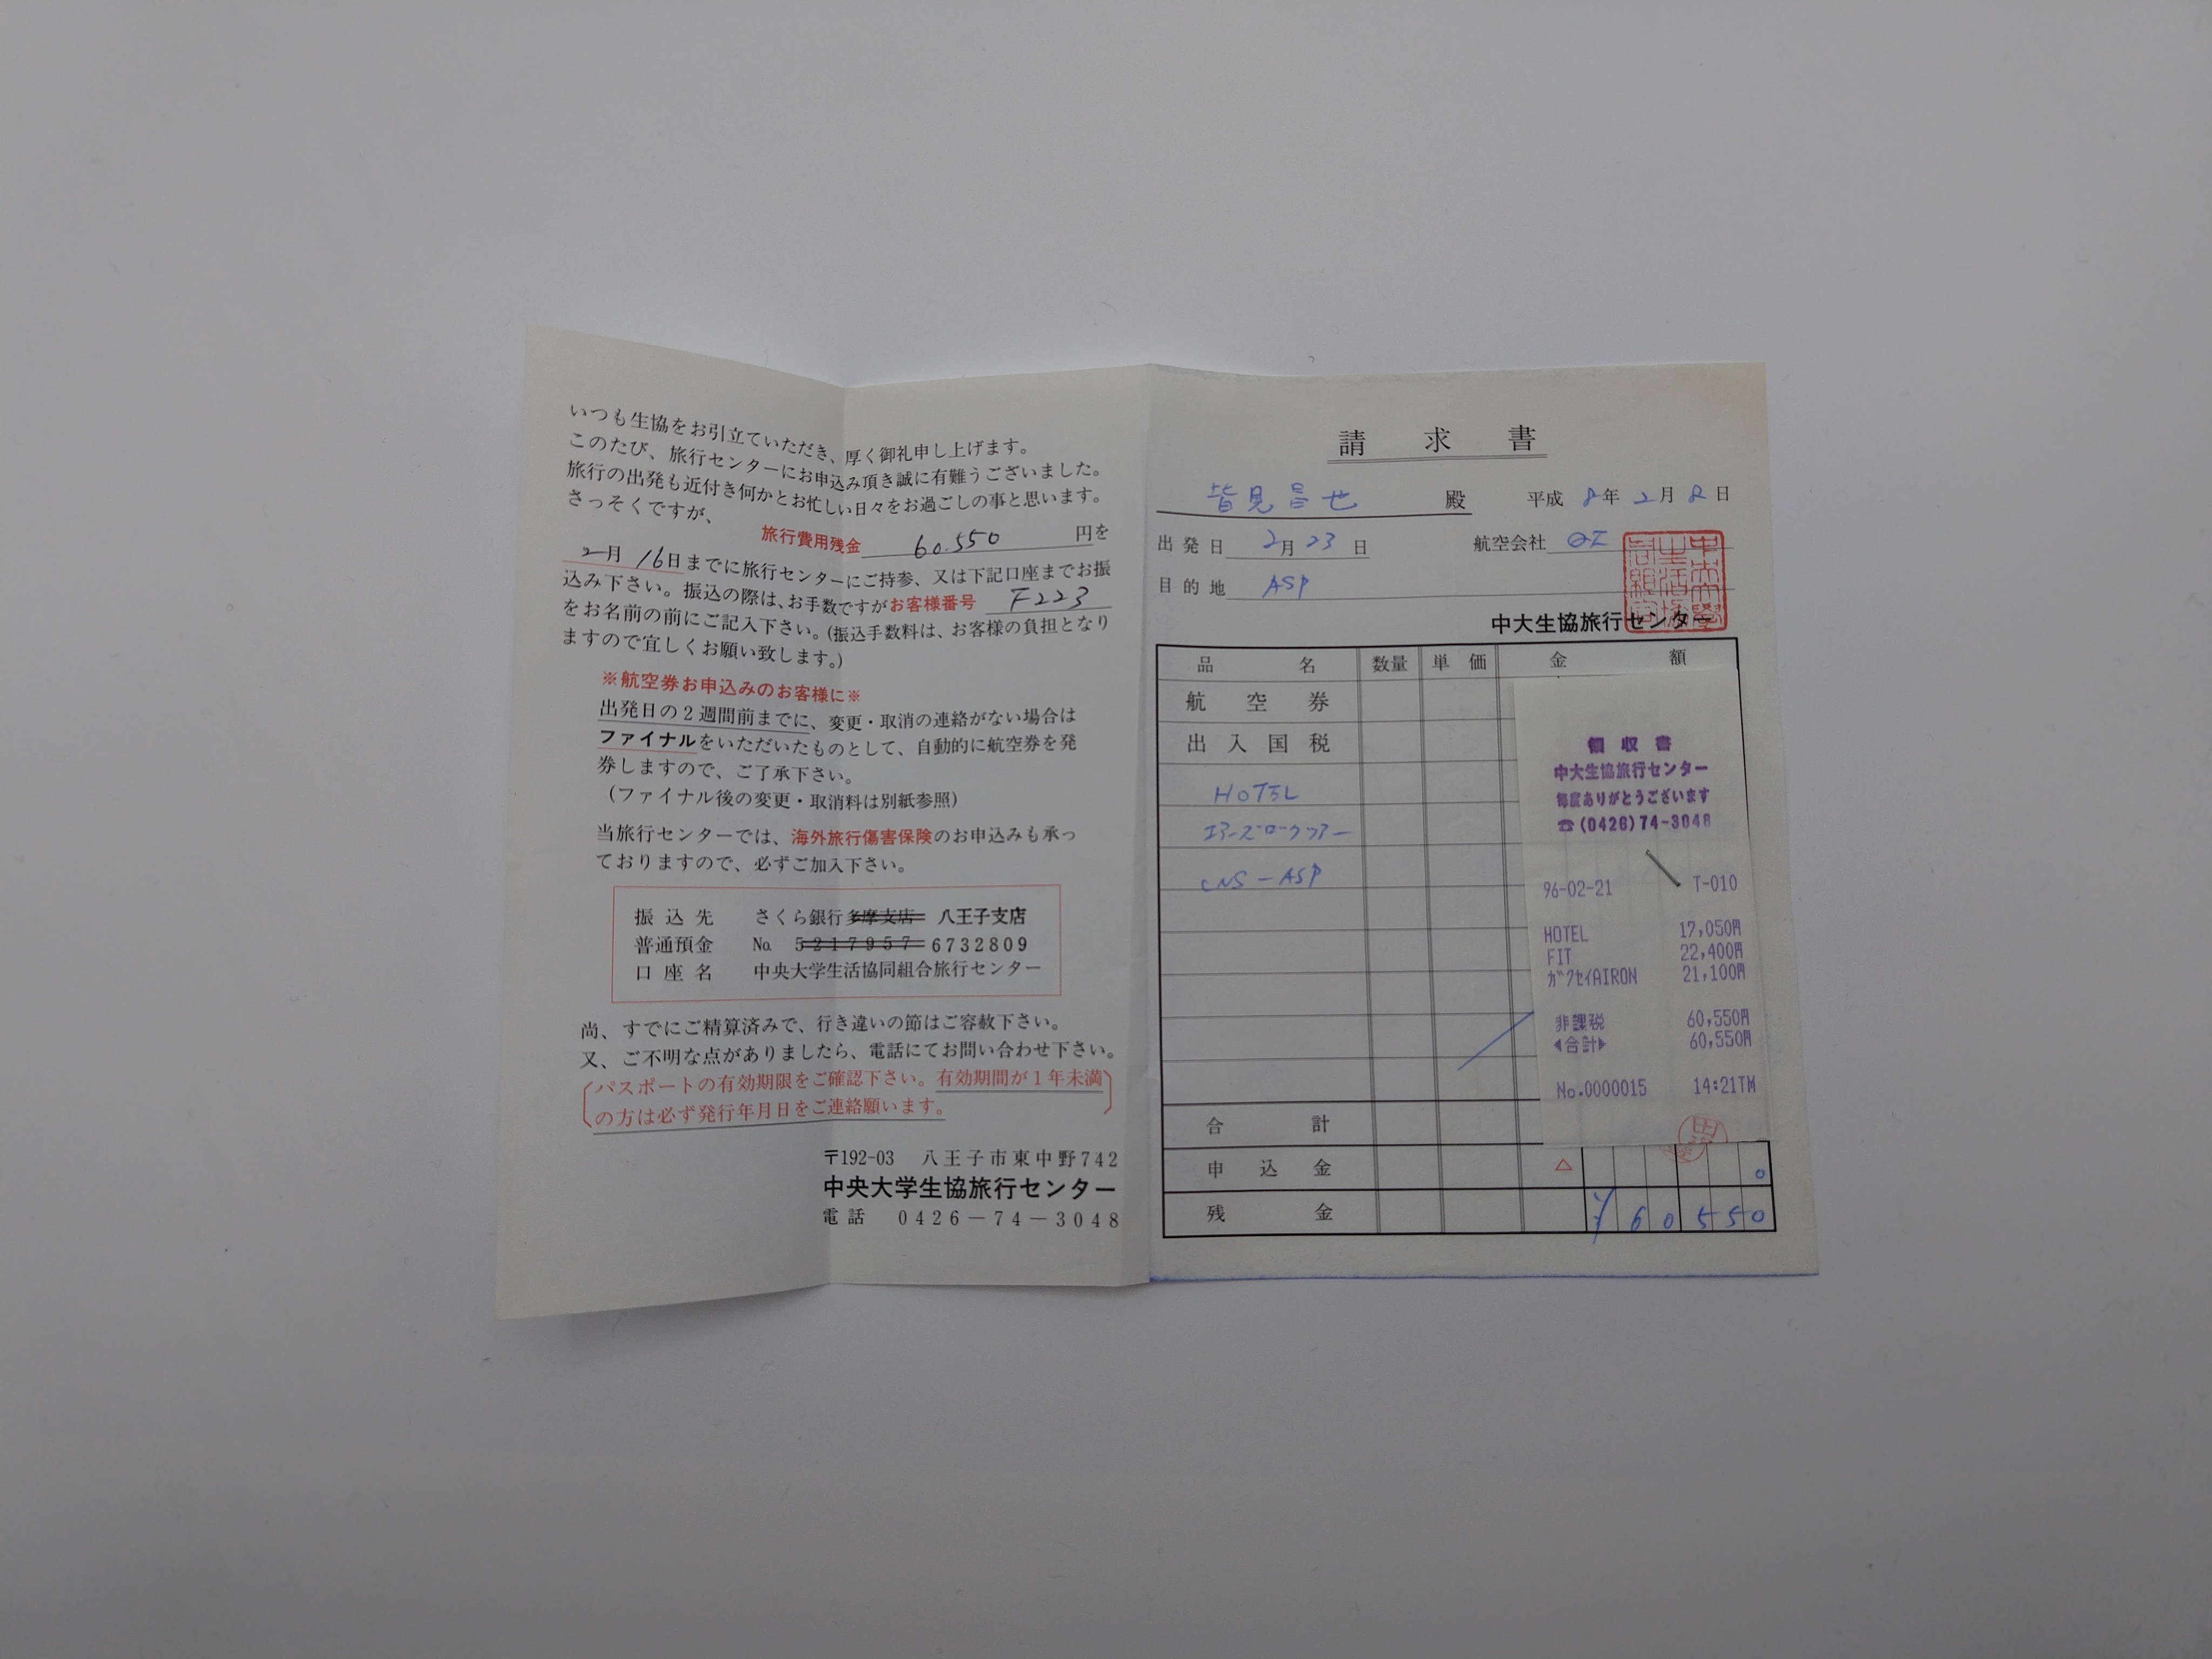 いつも生協をお引立ていただき、厚く御礼申し上げます。
このたび、旅行センターにお申込み頂き誠に有難うございました。
旅行の出発も近付き何かとお忙しい日々をお過ごしの事と思います。
さっそくですが、
旅行費用残金 60.550 円を
2月 16日までに旅行センターにご持参、又は下記口座までお振
込み下さい。振込の際は、お手数ですがお客様番号 F223
をお名前の前にご記入下さい。(振込手数料は、お客様の負担となり
ますので宜しくお願い致します。)
※航空券お申込みのお客様に※
出発日の2週間前までに、変更・取消の連絡がない場合は
ファイナルをいただいたものとして、自動的に航空券を発
券しますので、ご了承下さい。
(ファイナル後の変更・取消料は別紙参照)
当旅行センターでは、海外旅行傷害保険のお申込みも承っ
ておりますので、必ずご加入下さい。
振込先 さくら銀行多摩支店 八王子支店
普通預金 No. 5217957 6732809
口座名 中央大学生活協同組合旅行センター
尚、すでにご精算済みで、行き違いの節はご容赦下さい。
又、ご不明な点がありましたら、電話にてお問い合わせ下さい。
パスポートの有効期限をご確認下さい。有効期間が1年未満
の方は必ず発行年月日をご連絡願います。
〒192-03 八王子市東中野742
中央大学生協旅行センター
電話 0426-74-3048
請求書
皆見昌也 殿 平成8年2月8日
出発日 2月23日 航空会社
目的地 ASP
中大生協旅行センター
品名 数量 単価 金額
航空券
出入国税
HOTEL
エアーズロックツアー
CNS-ASP
合計
申込金 △ 0
残金 ¥60550
領収書
中大生協旅行センター
毎度ありがとうございます
☎(0426)74-3048
96-02-21 T-010
HOTEL 17,050円
FIT 22,400円
ガクセイAIRON 21,100円
非課税 60,550円
◀合計▶ 60,550円
No.0000015 14:21TM